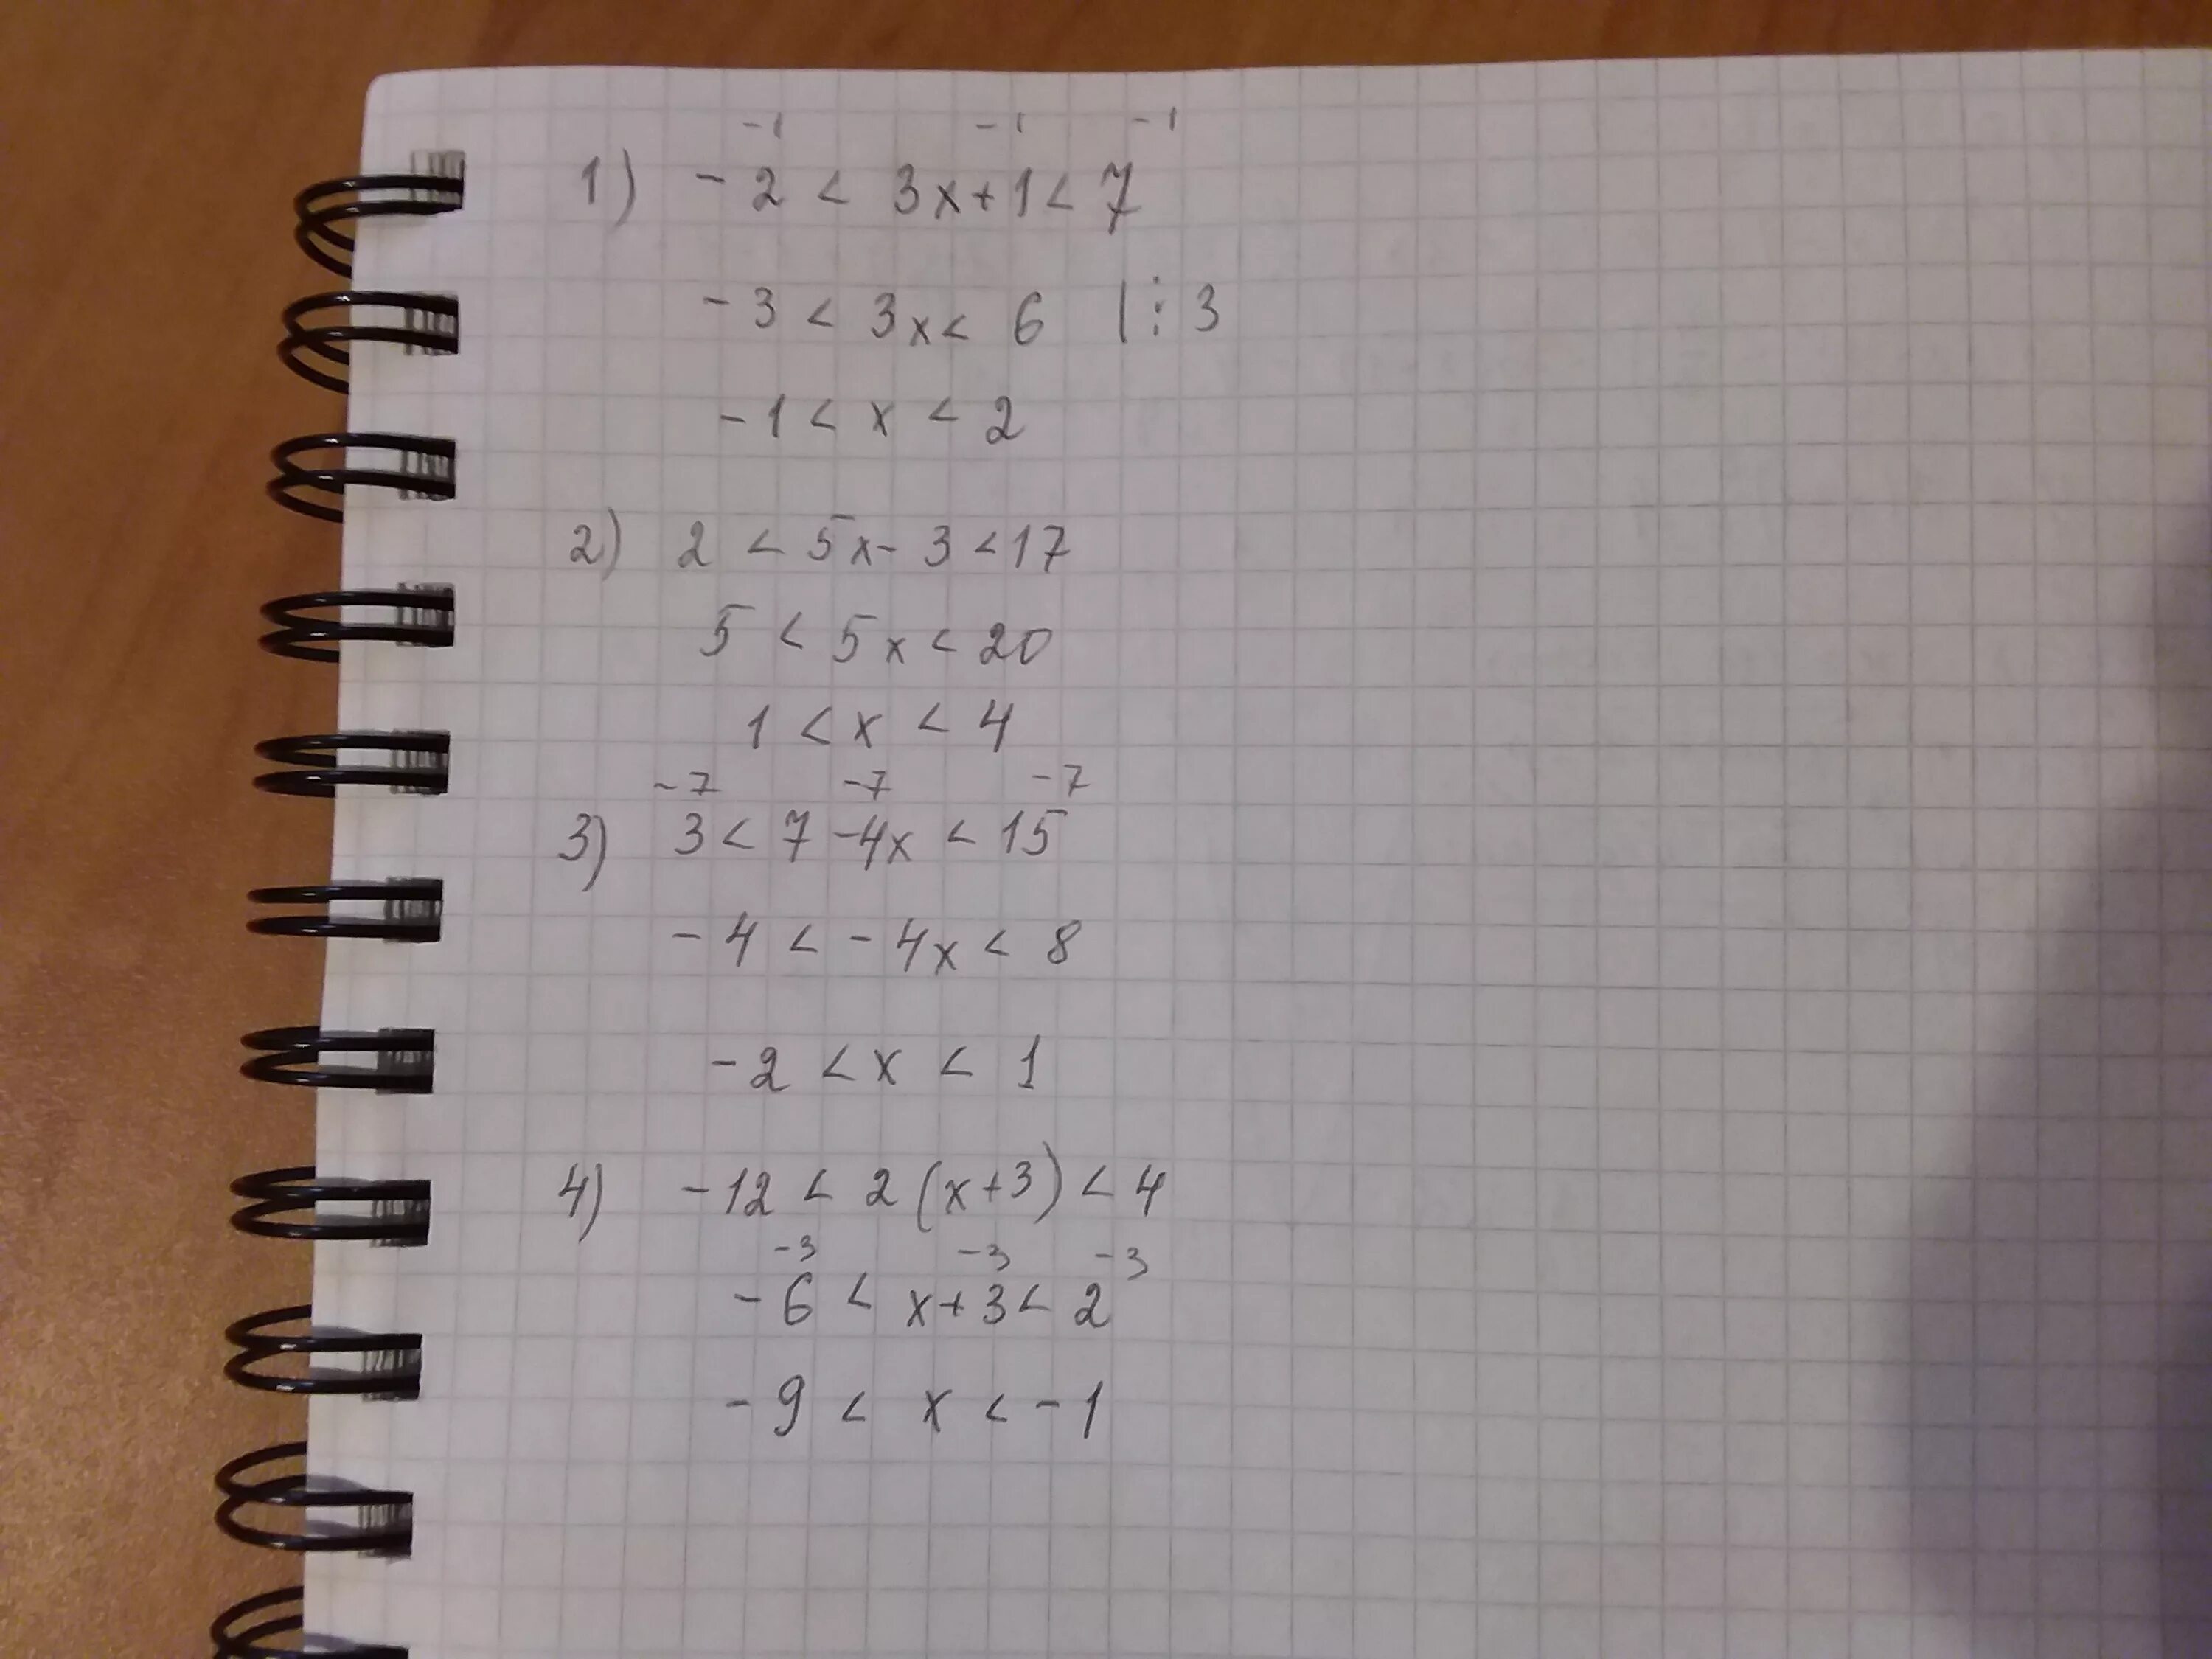 -1 -1 -1
1) -2 < 3x+1 < 7
-3 < 3x < 6 |:3
-1 < x < 2
2) 2 < 5x-3 < 17
5 < 5x < 20
1 < x < 4
-7 -7 -7
3) 3 < 7-4x < 15
-4 < -4x < 8
-2 < x < 1
4) -12 < 2(x+3) < 4
-3 -3 -3
-6 < x+3 < 2
-9 < x < -1